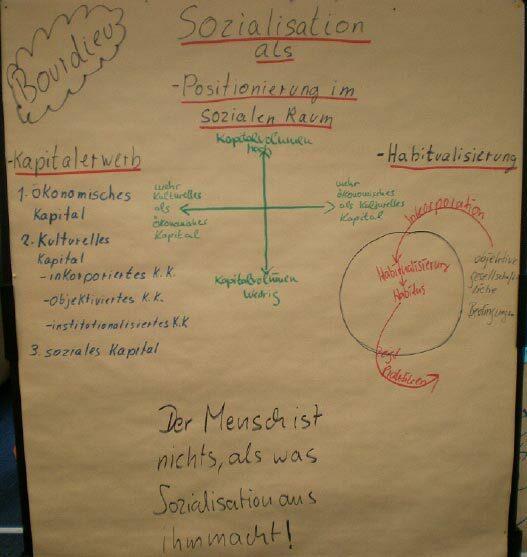 Bourdieu
Sozialisation
als
-Positionierung im
sozialen Raum
-Kapitalerwerb
1. ökonomisches
Kapital
2. Kulturelles
Kapital
-inkorporiertes K.K.
-objektiviertes K.K.
-institutionalisiertes K.K
3. soziales Kapital
Kapitalvolumen
hoch
mehr
Kulturelles
als
ökonomisches
Kapital
mehr
ökonomisches
als Kulturelles
Kapital
Kapitalvolumen
niedrig
-Habitualisierung
Inkorporation
objektive
gesellschaft-
liche
Bedingungen
Habitualisierung
Habitus
Praktiken
Der Mensch ist
nichts, als was
Sozialisation aus
ihm macht!